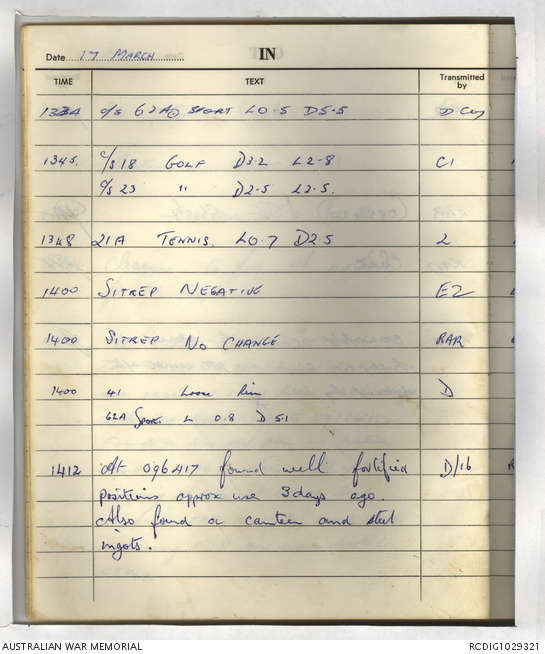 Date 17 MARCH IN
TIME TEXT Transmitted by
1334 c/s 62A SPORT L0.5 D5.5 D Coy
1345 c/s 18 GOLF D3.2 L2-8 C1
c/s 23 " D2-5 L2.5.
1348 21A TENNIS. L0.7 D2.5 2
1400 SITREP NEGATIVE E2
1400 SITREP NO CHANGE RAR
1400 41 Loose D
62A Spor. L 0.8 D 5.1
1412 At 096417 found well fortified D/16
positions approx use 3 days ago.
Also found a canteen and steel
ingots.
AUSTRALIAN WAR MEMORIAL RCDIG1029321